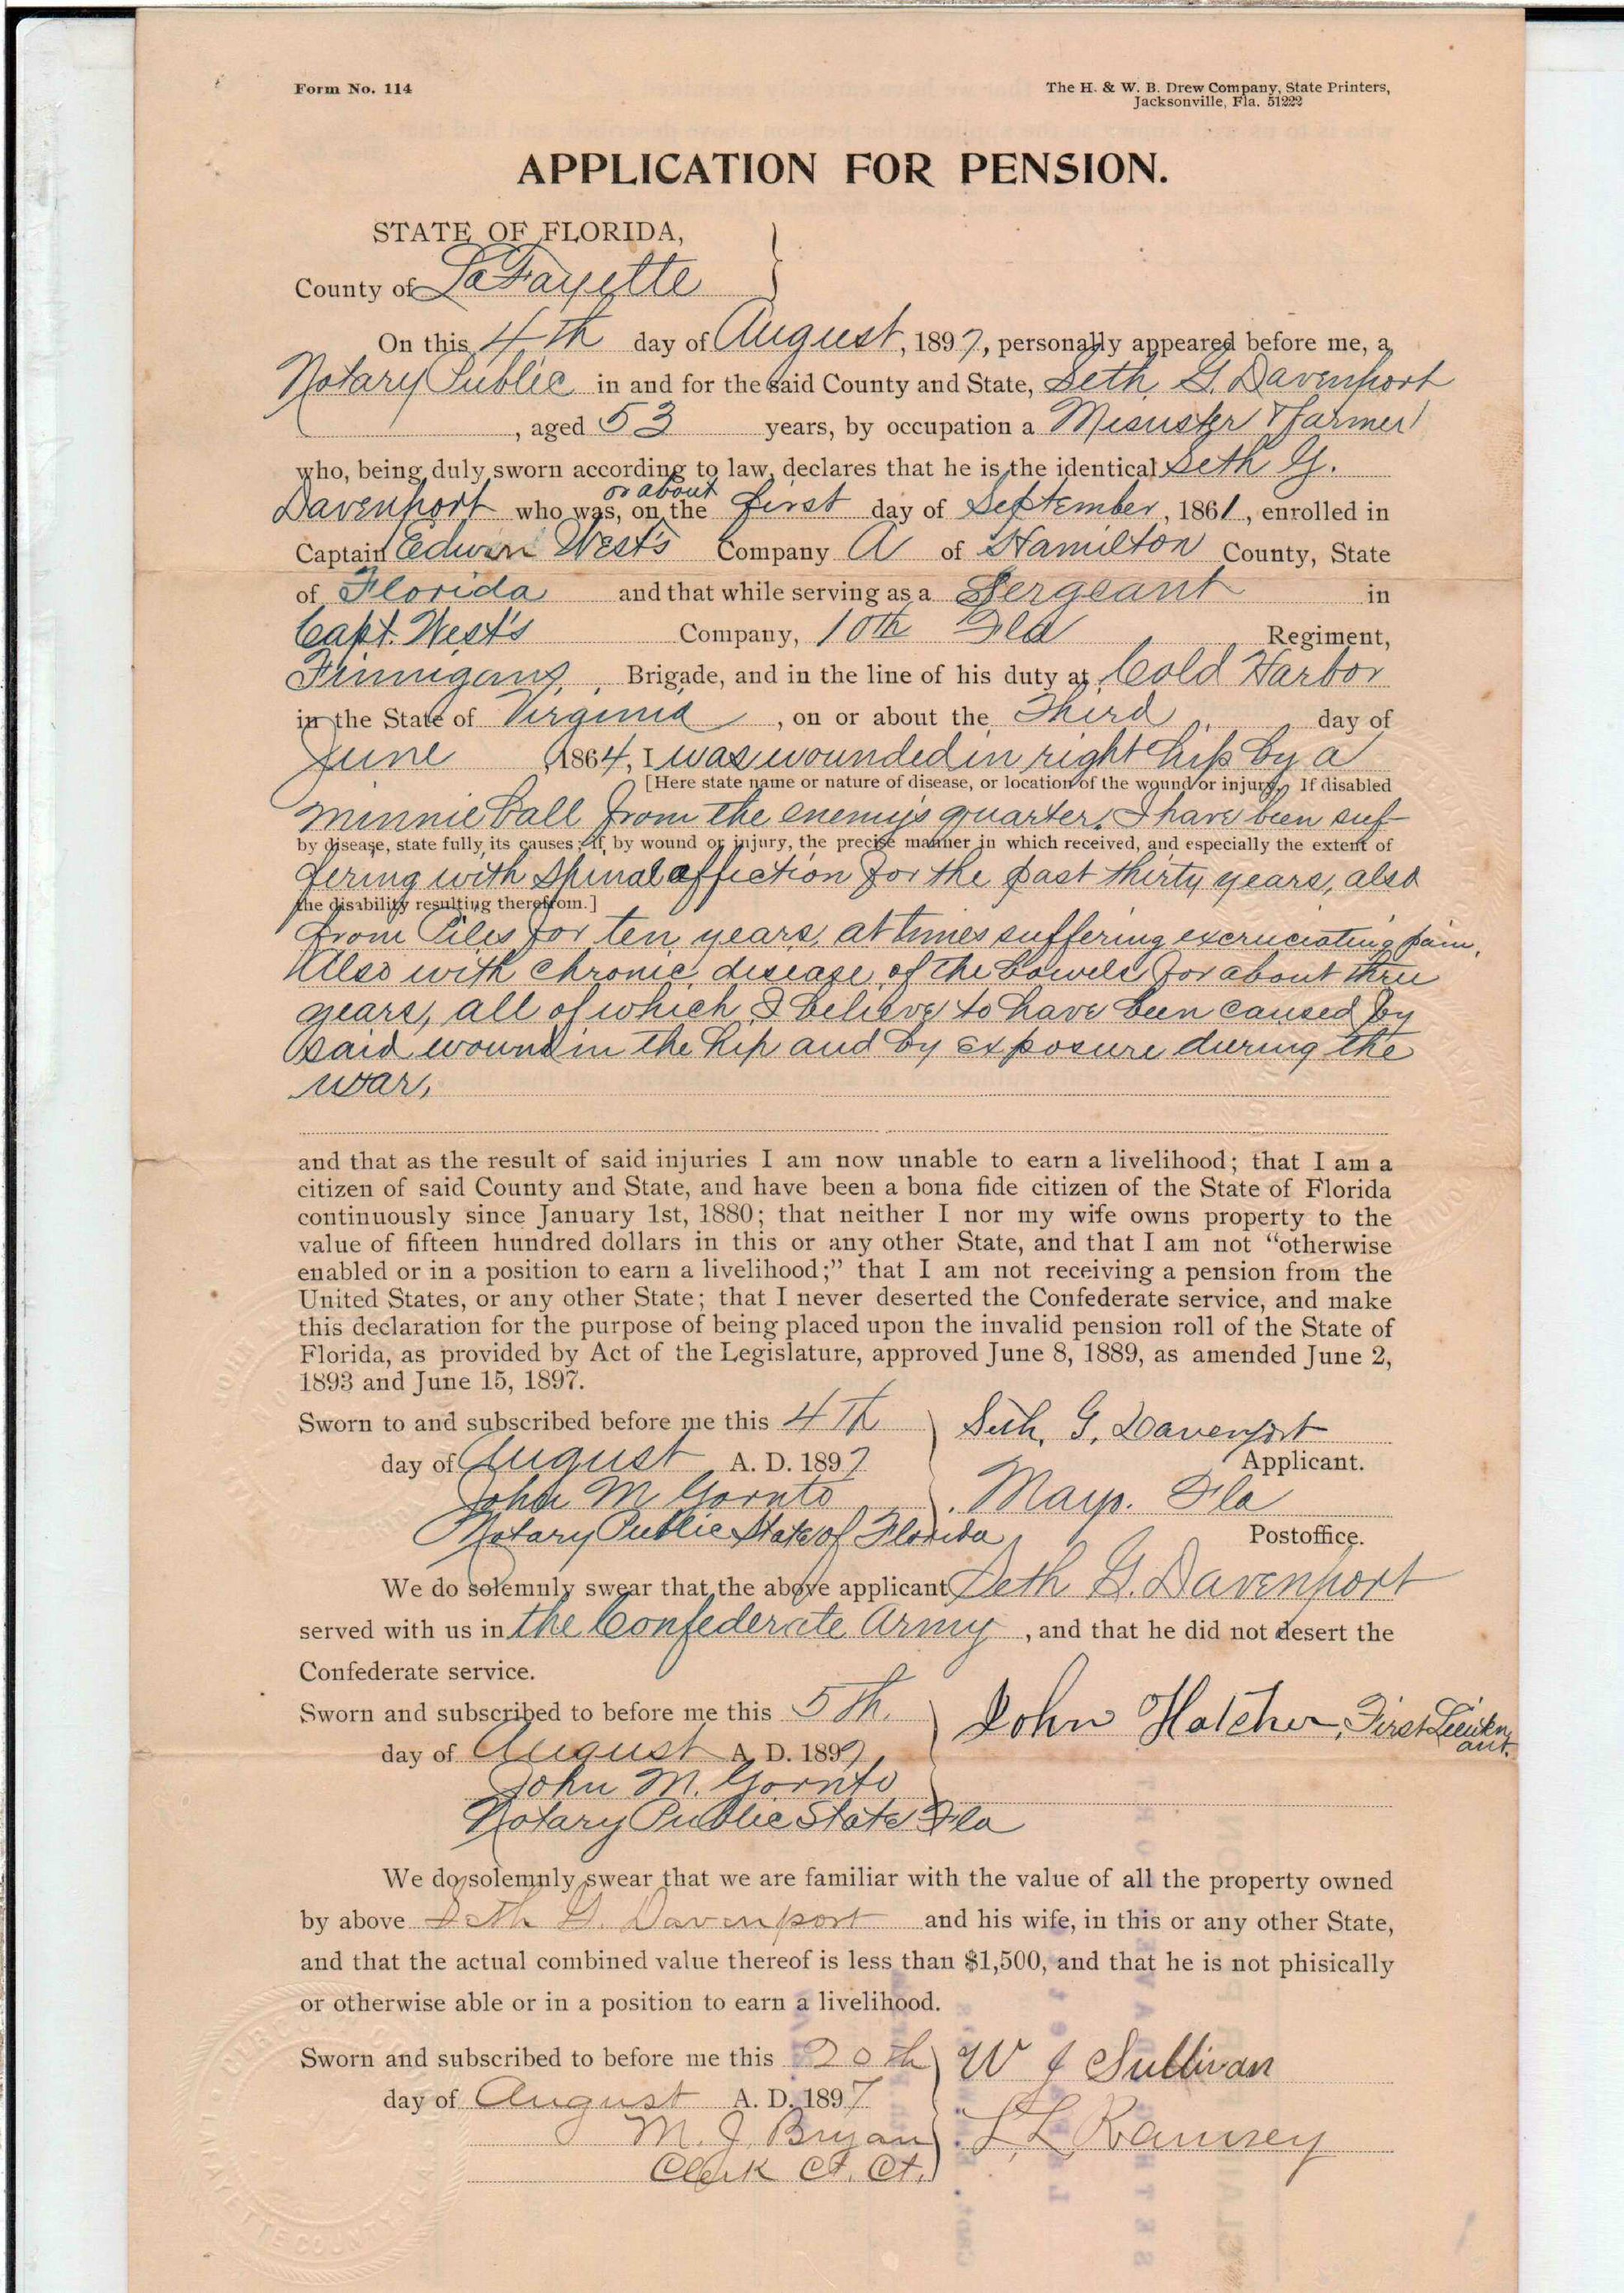 Form No. 114
The H. & W. B. Drew Company, State Printers,
Jacksonville, Fla. 51222
APPLICATION FOR PENSION.
STATE OF FLORIDA,
County of LaFayette
On this 4th day of August, 1897, personally appeared before me, a
Notary Public in and for the said County and State, Seth G. Davenport
, aged 53 years, by occupation a Minister & farmer
who, being duly sworn according to law, declares that he is the identical Seth G.
or about
Davenport who was, on the first day of September, 1861, enrolled in
Captain Edwin West's Company A of Hamilton County, State
of Florida and that while serving as a Sergeant in
Capt. West's Company, 10th Fla Regiment,
Finnigans, Brigade, and in the line of his duty at Cold Harbor
in the State of Virginia, on or about the Third day of
June, 1864, I was wounded in right hip by a
[Here state name or nature of disease, or location of the wound or injury. If disabled
minnie ball from the enemy's quarter. I have been suf-
by disease, state fully its causes; if by wound or injury, the precise manner in which received, and especially the extent of
fering with spinal affection for the past thirty years, also
the disability resulting therefrom.]
from Piles for ten years, at times suffering excruciating pain.
Also with chronic disease of the bowels for about three
years, all of which I believe to have been caused by
said wound in the hip and by exposure during the
war.
and that as the result of said injuries I am now unable to earn a livelihood; that I am a
citizen of said County and State, and have been a bona fide citizen of the State of Florida
continuously since January 1st, 1880; that neither I nor my wife owns property to the
value of fifteen hundred dollars in this or any other State, and that I am not "otherwise
enabled or in a position to earn a livelihood;" that I am not receiving a pension from the
United States, or any other State; that I never deserted the Confederate service, and make
this declaration for the purpose of being placed upon the invalid pension roll of the State of
Florida, as provided by Act of the Legislature, approved June 8, 1889, as amended June 2,
1893 and June 15, 1897.
Sworn to and subscribed before me this 4th Seth, G, Davenport
day of August A. D. 1897 Applicant.
John M Gornto Mayo. Fla
Notary Public State of Florida Postoffice.
We do solemnly swear that the above applicant Seth G. Davenport
served with us in the Confederate Army, and that he did not desert the
Confederate service.
Sworn and subscribed to before me this 5th. John Hatcher, First Lieuten
ant.
day of August A. D. 1897
John M. Gornto
Notary Public State Fla
We do solemnly swear that we are familiar with the value of all the property owned
by above Seth G. Davenport and his wife, in this or any other State,
and that the actual combined value thereof is less than $1,500, and that he is not phisically
or otherwise able or in a position to earn a livelihood.
Sworn and subscribed to before me this 20th W J Sullivan
day of August A. D. 1897
M. J. Bryan L. L. Ramsey
Clerk Ct. Ct.